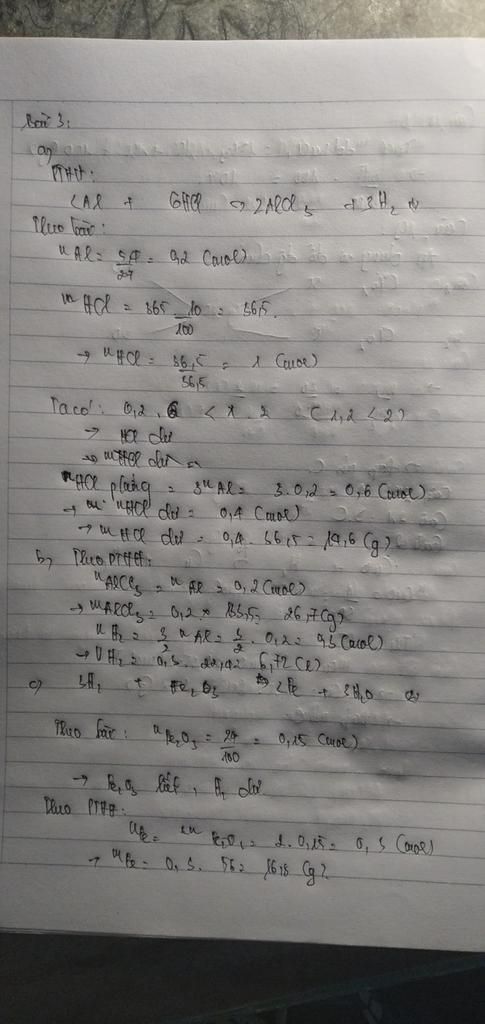 Bài 3:
a)
PTHH:
2Al + 6HCl → 2AlCl3 + 3H2 (1)
Theo bài:
nAl = 5,4/27 = 0,2 (mol)
mHCl = 365 . 10/100 = 36,5.
→ nHCl = 36,5/36,5 = 1 (mol)
Ta có: 0,2 . 6 < 1 . 2 (1,2 < 2)
→ HCl dư
→ mHCl dư =
nHCl p/ứng = 3nAl = 3 . 0,2 = 0,6 (mol)
→ nHCl dư = 0,4 (mol)
→ mHCl dư = 0,4 . 36,5 = 14,6 (g)
b, Theo PTHH:
nAlCl3 = nAl = 0,2 (mol)
→ mAlCl3 = 0,2 . 133,5 = 26,7 (g)
nH2 = 3/2 nAl = 3/2 . 0,2 = 0,3 (mol)
→ VH2 = 0,3 . 22,4 = 6,72 (l)
c) 3H2 + Fe2O3 → 2Fe + 3H2O (2)
Theo bài: nFe2O3 = 24/160 = 0,15 (mol)
→ Fe2O3 hết, H2 dư
Theo PTHH:
nFe = 2nFe2O3 = 2 . 0,15 = 0,3 (mol)
→ mFe = 0,3 . 56 = 16,8 (g)